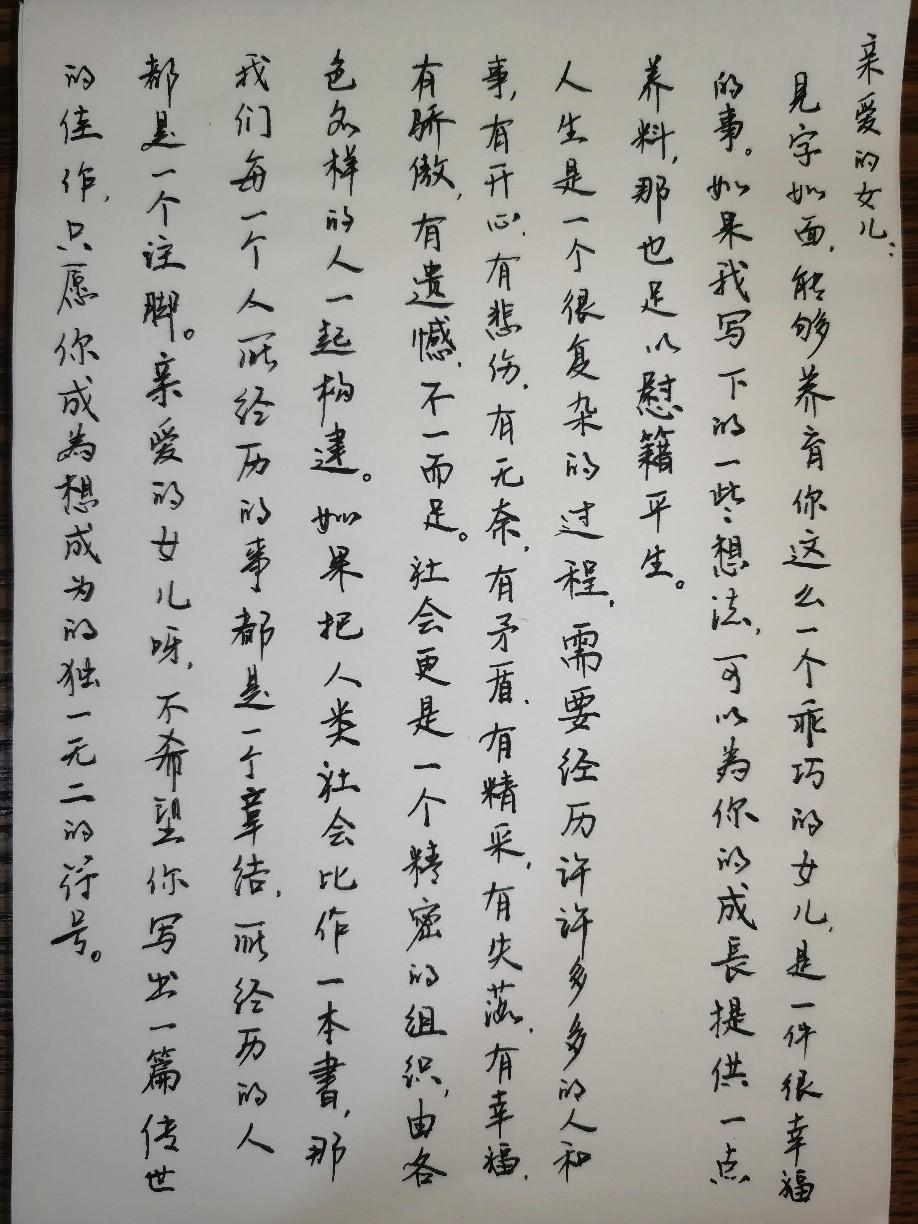 亲爱的女儿：
见字如面，能够养育你这么一个乖巧的女儿，是一件很幸福
的事。如果我写下的一些想法，可以为你的成長提供一点
养料，那也足以慰籍平生。
人生是一个很复杂的过程，需要经历许许多多的人和
事，有开心，有悲伤，有无奈，有矛盾，有精采，有失落，有幸福，
有骄傲，有遗憾，不一而足。社会更是一个精密的组织，由各
色各样的人一起构建。如果把人类社会比作一本書，那
我们每一个人所经历的事都是一个章结，所经历的人
都是一个注脚。亲爱的女儿呀，不希望你写出一篇传世
的佳作，只愿你成為想成为的独一无二的符号。